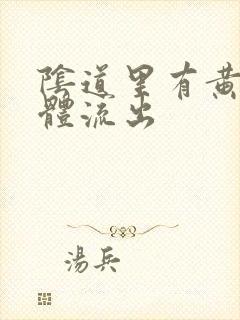 陰道里有黃
體流出
湯兵